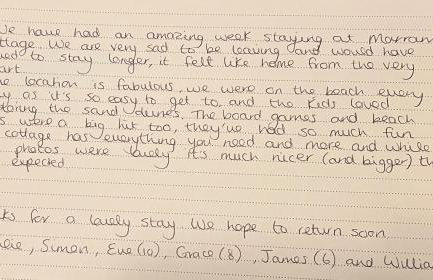 We have had an amazing week staying at Marram
ttage. We are very sad to be leaving and would have
ed to stay longer, it felt like home from the very
art.
e location is fabulous, we were on the beach every
y as it's so easy to get to, and the kids loved
loring the sand dunes. The board games and beach
s were a big hit too, they've had so much fun
cottage has everything you need and more and while
photos were lovely it's much nicer (and bigger) th
expected.
ks for a lovely stay. We hope to return soon.
lie, Simon, Eve (10), Grace (8), James (6) and Willia